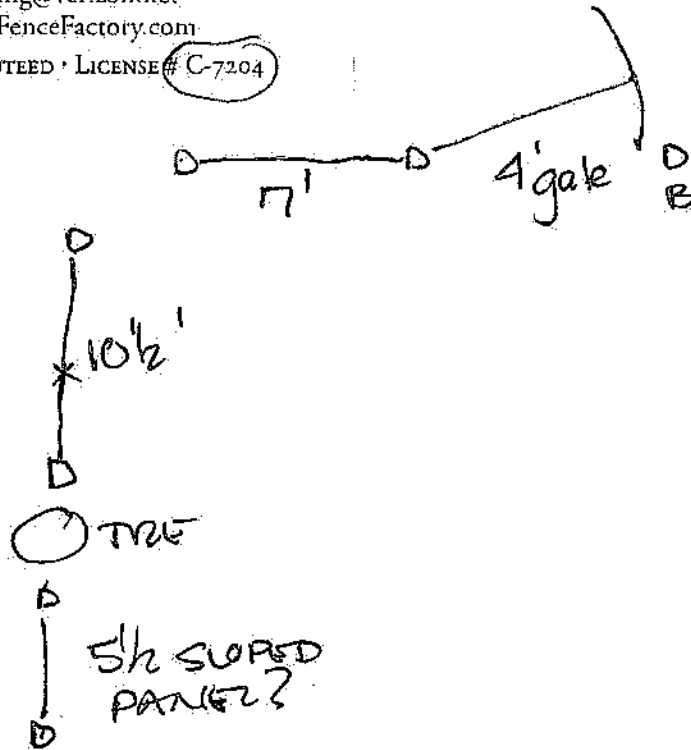 FenceFactory.com
TEED · LICENSE # C-7204
D D D
7' 4' gate B
D
10 1/2'
D
TREE
D
5 1/2 SLOPED
PANEL?
D